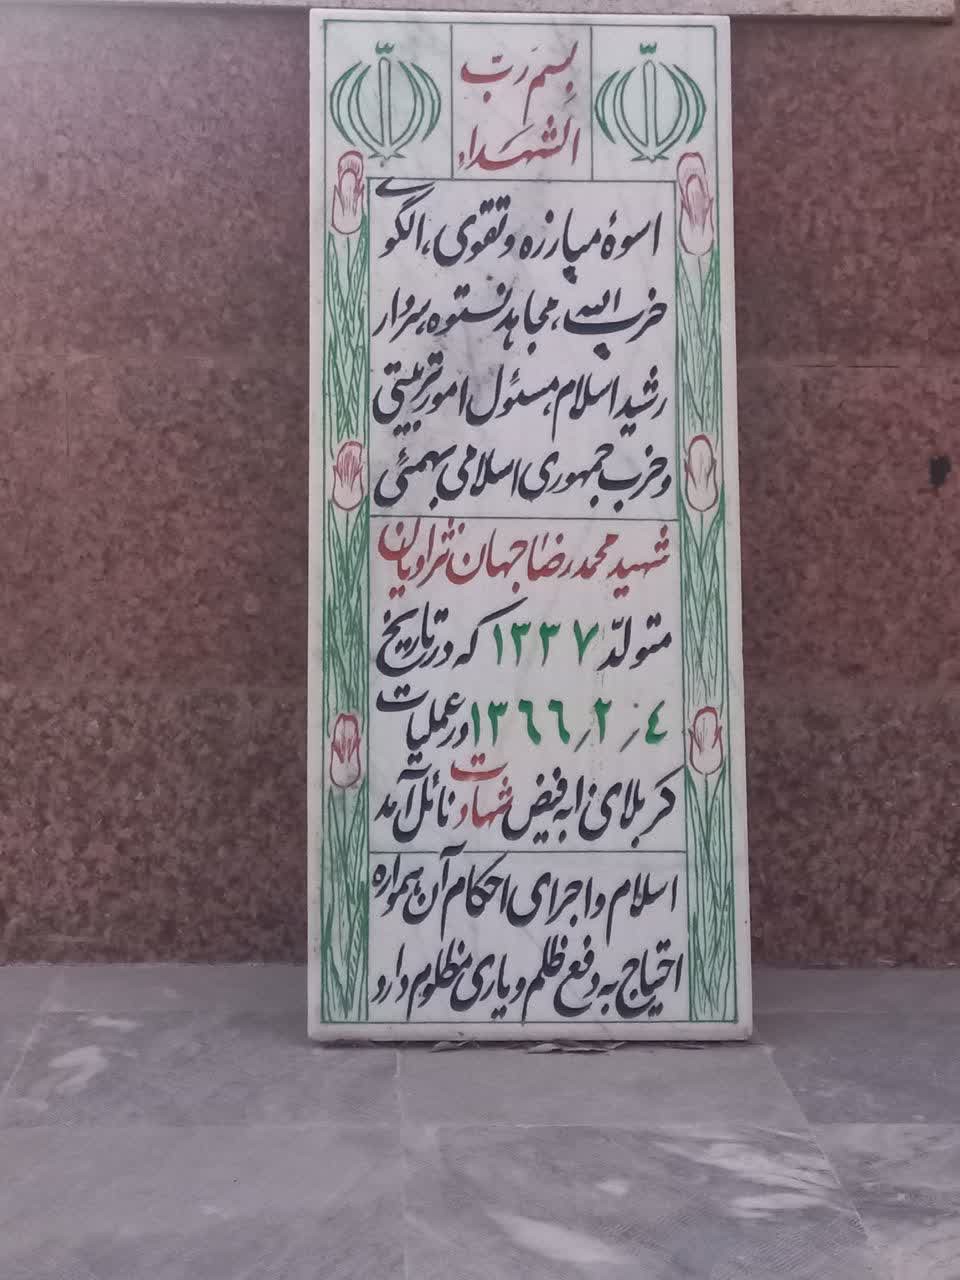 بسم ربّ
الشهداء
اسوهٔ مبارزه و تقوی، الگوی
حزب الله، مجاهد نستوه، سردار
رشید اسلام، مسئول امور تربیتی
و حزب جمهوری اسلامی بهمئی
شهید محمدرضا جهان نژادیان
متولّد ۱۳۳۷ که در تاریخ
۴ر۲ر۱۳۶۶ در عملیات
کربلای ۱۰ به فیض شهادت نائل آمد
اسلام و اجرای احکام آن همواره
احتیاج به دفع ظلم و یاری مظلوم دارد